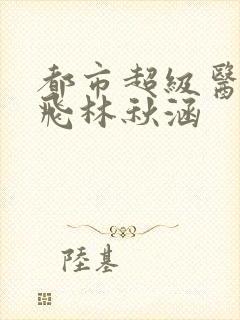 都市超級醫
飛林秋涵
陸基